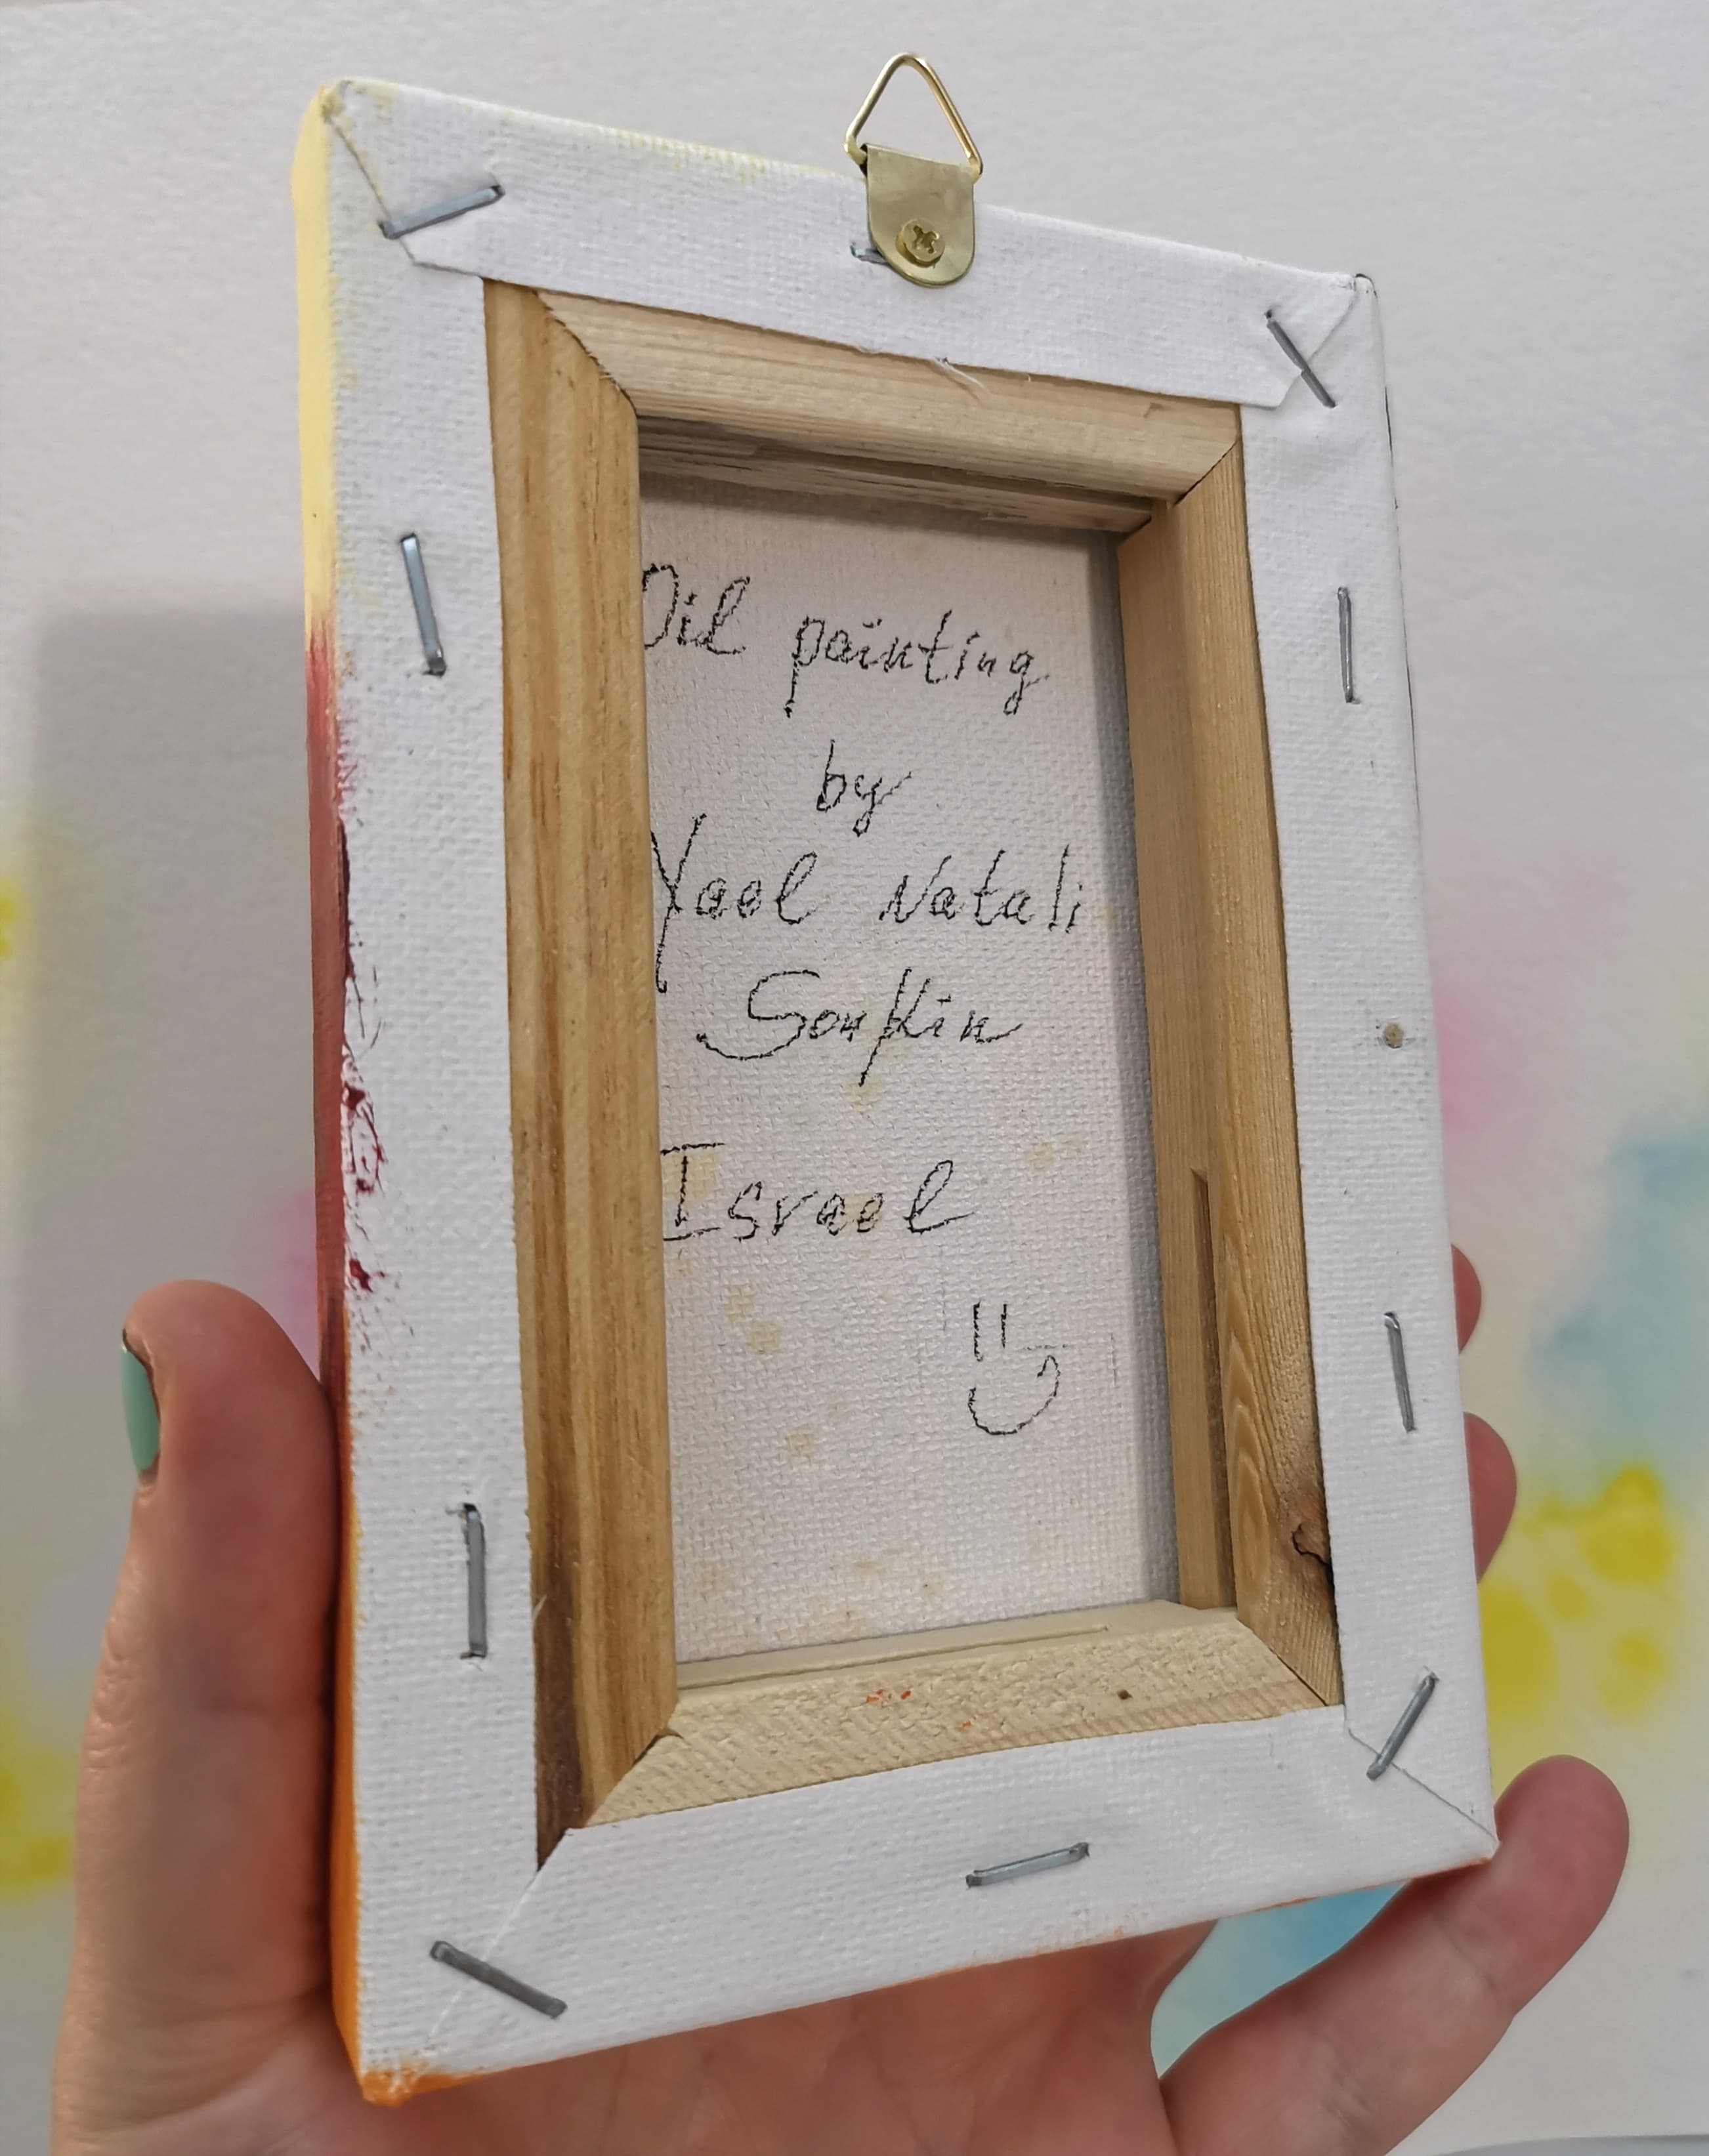 Oil painting
by
Yael Natali
Sonkin
Israel
=)